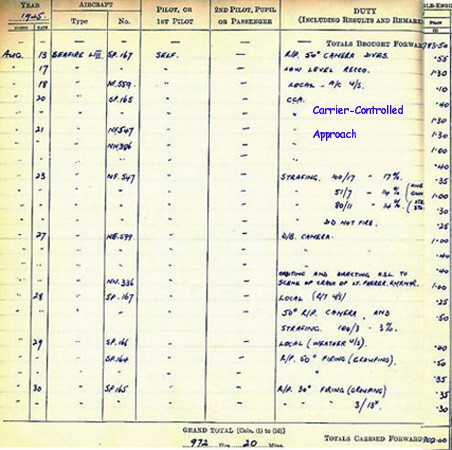 YEAR AIRCRAFT PILOT, OR 1ST PILOT 2ND PILOT, PUPIL OR PASSENGER DUTY (INCLUDING RESULTS AND REMARKS
1945. Type No. PILOT
MONTH DATE (1)
— — — — — — TOTALS BROUGHT FORWARD 783.50
AUG. 13 SEAFIRE L.III. SP.167 SELF. — R/P. 50° CAMERA DIVES. .55
" 17 " " " — LOW LEVEL RECCO. 1.30
" 18 " NF.559 " — LOCAL - A/C U/S. .10
" 20 " SP.165 " — CCA. .40
Carrier-Controlled
Approach
" " " " " — " 1.30
" 21 " NF.547 " — " 1.30
" " " NN.386 " — " 1.00
" " " " " — " .40
" 23 " NF.547 " — STRAFING. 100/17 - 17%. .35
" " " " " — " 51/7 - 14% 1.00
" " " " " — " 80/11 - 14% .30
" " " " " — " DID NOT FIRE. .25
" 27 " " — D/B. CAMERA. 1.00
" " " " " — " .40
" " " " " — " .40
ORBITING AND DIRECTING TO
" " " NN.336 " — SCENE OF CRASH OF LT. 1.00
" 28 " SP.167 " — LOCAL (R/T U/S) .25
" " " " " — 50° R/P. CAMERA, AND .50
STRAFING 100/3 - 3%.
" 29 " SP.166 " — LOCAL (WEATHER U/S). .40
" " " SP.164 " — R/P. 50° FIRING (GROUPING). .50
" " " " " — " " .35
" 30 " SP.165 " — R/P. 30° FIRING (GROUPING) .35
" " " " " — " " 3/13x .30
GRAND TOTAL [Cols. (1) to (10)]
972 Hrs. 20 Mins.
TOTALS CARRIED FORWARD